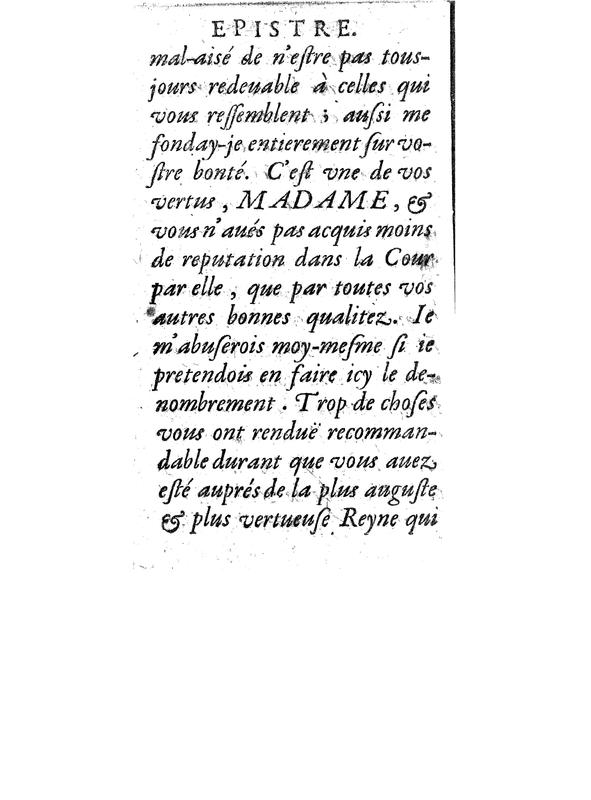 EPISTRE.
mal-aisé de n'eſtre pas tous-
jours redeuable à celles qui
vous reſſemblent ; auſsi me
fonday-je entierement ſur vo-
ſtre bonté. C'eſt vne de vos
vertus, MADAME, &
vous n'aués pas acquis moins
de reputation dans la Cour
par elle, que par toutes vos
autres bonnes qualitez. Ie
m'abuſerois moy-meſme ſi ie
pretendois en faire icy le de-
nombrement. Trop de choſes
vous ont renduë recomman-
dable durant que vous auez
eſté auprés de la plus auguſte
& plus vertueuſe Reyne qui